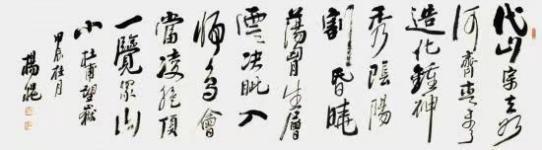 岱宗夫如
何齊魯青未了
造化鍾神
秀陰陽
割昏曉
蕩胸生層
雲決眥入
歸鳥會
當凌絕頂
一覽眾山
小 杜甫望嶽
甲辰桂月
楊